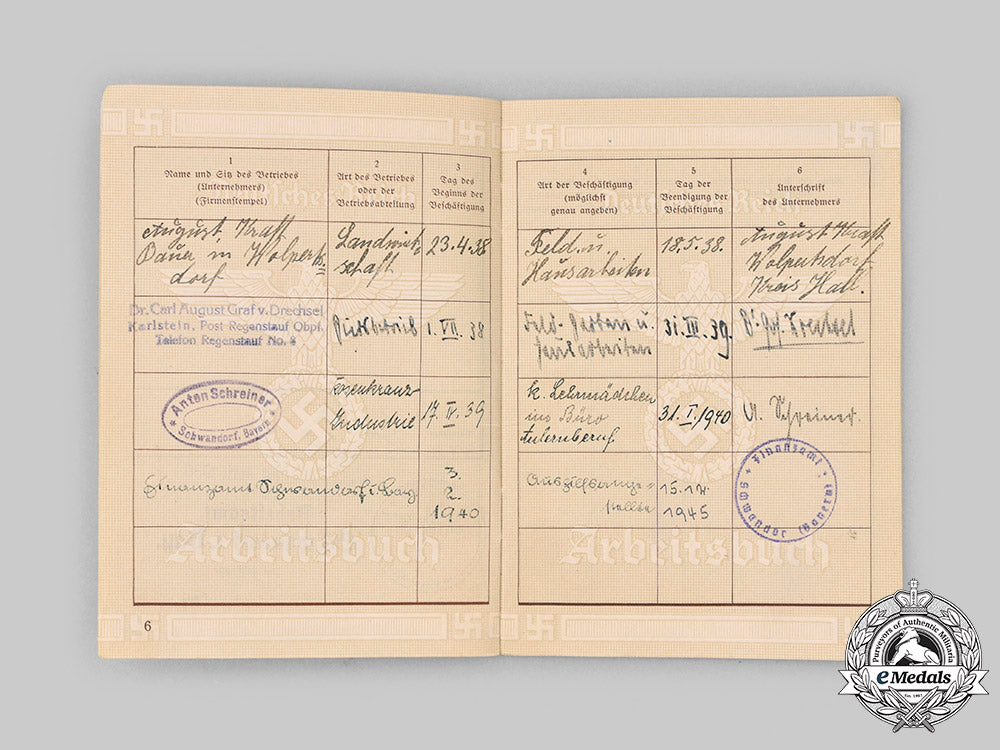 1
Name und Sitz des Betriebes
(Unternehmers)
(Firmenstempel)
2
Art des Betriebes
oder der
Betriebsabteilung
3
Tag des
Beginns der
Beschäftigung
4
Art der Beschäftigung
(möglichst
genau angeben)
5
Tag der
Beendigung der
Beschäftigung
6
Unterschrift
des Unternehmers
August Kraft
Bauer in Wolperts=
dorf
Landwirt=
schaft
23.4.38
Feld- u.
Hausarbeiten
18.5.38.
August Kraft
Wolpertsdorf
Kreis Hall.
Dr. Carl August Graf v. Drechsel
Karlstein, Post Regenstauf Obpf.
Telefon Regenstauf No. 4
Gutsbetrieb
1. VII. 38
Feld- Garten u.
Hausarbeiten
31. III. 39.
Drechsel
Anton Schreiner
Schwandorf, Bayern
Rosenkranz-
Industrie
17. IV. 39
k. Lehrmädchen
im Büro
Anlernberuf
31. I. 1940
A. Schreiner.
Finanzamt Schwandorf i. Bay
3.
2.
1940
Aushilfsange=
stellte
15.
1945
Finanzamt
Schwandorf (Bayern)
Deutsches Reich
Arbeitsbuch
Arbeitsbuch
6
Purveyors of Authentic Militaria
eMedals